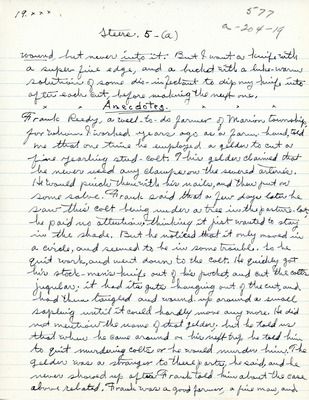 19.xxx.
577
Steere. 5-(a)
a-204-19
wound, but never into it. But I want a knife with
a super fine edge, and a bucket with a luke-warm
solution of some dis-infectant to dip my knife into
after each cut, before making the next one.
x x Anecdotes. x x
Frank Reedy, a well-to-do farmer of Marion township,
for whom I worked years ago as a farm hand, told
me that one time he employed a gelder to cut a
fine yearling stud-colt. This gelder claimed that
he never used any clamps on the severed arteries.
He would pinch them with his nails, and then put on
some salve. Frank said that a few days later he
saw this colt being under a tree in the pasture lot,
he paid no attention thinking it just wanted to stay
in the shade. But he noticed that it only moved in
a circle, and seemed to be in some trouble. So he
quit work, and went down to the colt. He quickly got
his stock-man's knife out of his pocket and cut the colt's
jugular; it had its guts hanging out of the cut, and
had them tangled and wound up around a small
sapling until it could hardly move any more. He did
not mention the name of that gelder, but he told us
that when he came around on his next trip he told him
to quit murdering colts or he would murder him. The
gelder was a stranger to these parts, he said, and he
never showed up after Frank told him about the case
above related. Frank was a good farmer, a fine man, and